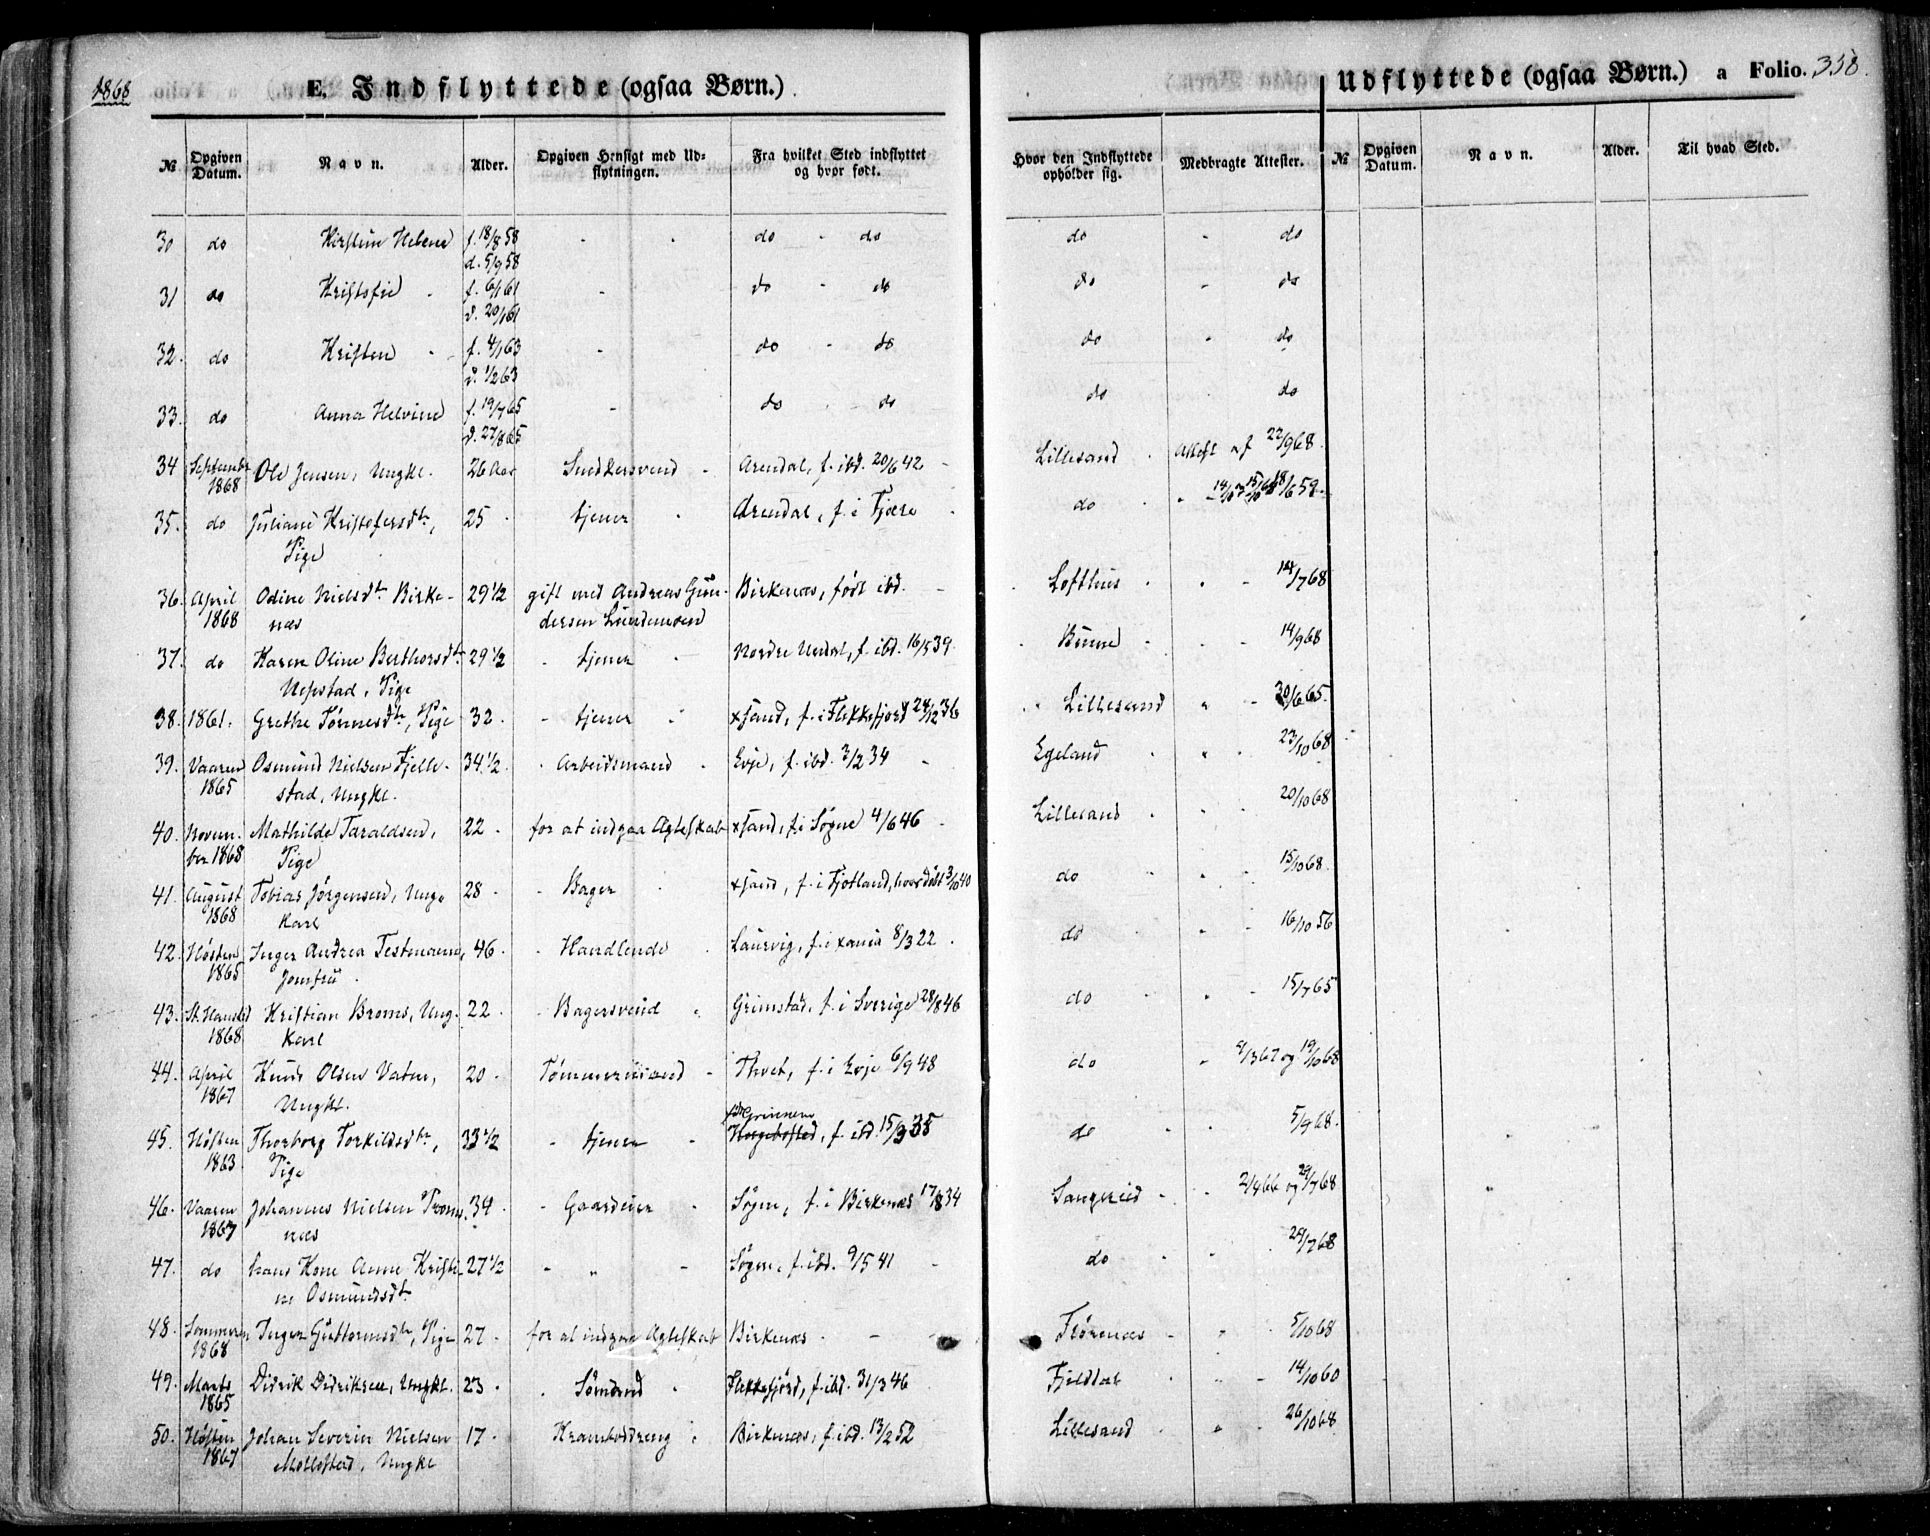 1868
E. Indflyttede (ogsaa Børn.)
Udflyttede (ogsaa Børn.) a Folio. 358.
№ Opgiven Datum. Navn. Alder. Opgiven Hensigt med Udflytningen. Fra hvilket Sted indflyttet og hvor født. Hvor den Indflyttede opholder sig. Medbragte Attester. № Opgiven Datum. Navn. Alder. Til hvad Sted.
30 do Kirstin Helene f. 18/8 58 - - do - do do - do
d. 5/9 58
31 do Kristofie - f. 6/1 61 - do - do do - do
d. 20/1 61
32. do Kristen - f. 4/1 63 - do - do do - do
d. 1/2 63
33. do Anna Helvine f. 19/7 65 - do - do do - do
d. 27/8 65
34 September Ole Jensen, Ungkl. 26 Aar Snedkersvend - Arendal, f. ibd. 20/6 42 - Lillesand - Attest af 22/9 68.
1868
35. do Juliane Kristofersdtr, 25 - tjener - Arendal, f. i Fjære - do -
Pige
36. April Odine Nielsdtr Birke- 29 1/2 gift med Andreas Gun- Birkenæs, født ibd. - Lofthus - - 14/7 68
1868 næs dersen Lundemoen
37. do Karen Oline Berthorsdtr 29 1/2 - tjener - Nordre Undal, f. ibd. 16/5 39. - - - 14/9 68
Uepstad, Pige
38. 1861. Grethe Tønnesdtr, Pige 32 - - tjener - xsand, f. i Flekkefjord 24/12 36 - Lillesand - - 30/6 65.
39. Vaaren Osmund Nielsen Fjelle- 34 1/2 - Arbeidsmand - Evje, f. ibd. 3/2 34 - Egeland - - 23/10 68
1865 stad, Ungkl.
40. Novem- Mathilde Taraldsen, 22 - for at indgaa Ægteskab xsand, f. i Søgne 4/6 46 - Lillesand - - 20/10 68
ber 1868 Pige
41. August Tobias Jørgensen, Ung- 28 - - Bager - xsand, f. i Fjotland, hvor døbt 3/10 40 do - - 15/10 68.
1868 karl
42. Høsten Inger Andrea Testmann, 46 - - Handlende - Laurvig, f. i xania 8/3 22 - do - - 16/10 56
1865 Jomfru -
43. St. Hansted Kristian Broms, Ung- 22 - - Bagersvend - Grimstad, f. i Sverige 28/8 46 do - - 15/7 65
1868 karl
44. April Knud Olsen Vatn, 20 - Tømmermand - Thvet, f. i Evje 6/9 48 do - 9/3 67 og 19/10 68
1867 Ungkl.
45. Høsten Thorborg Torkildsdtr, 33 1/2 - tjener - f. ibd. 15/3 35 do - - 5/9 68.
1863 Pige
46. Vaaren Johannes Nielsen Trom- 34 - - Gaardeier - Søgne, f. i Birkenæs 17/8 34 Sangereid - - 2/4 66 og 29/7 68
1867 næs
47. do hans Kone Anne Kristi- 27 1/2 - " - Søgne, f. ibd. 9/5 41 - do - - 29/7 68
ne Osmundsdtr
48. Sommeren Inger Guttormsdtr, Pige 27 - for at indgaa Ægteskab Birkenæs - - - - - 5/10 68
1868
49. Marts Didrik Didriksen, Ungkl. 23 - - Sømand - Flekkefjord, f. ibd. 31/3 46 Fjelddal - - 14/10 60
1865
50. Høsten Johan Severin Nielsen 17 - Krambodreng - Birkenæs, f. ibd. 13/2 52 Lillesand - - 26/10 68
1867 Mollestad, Ungkl